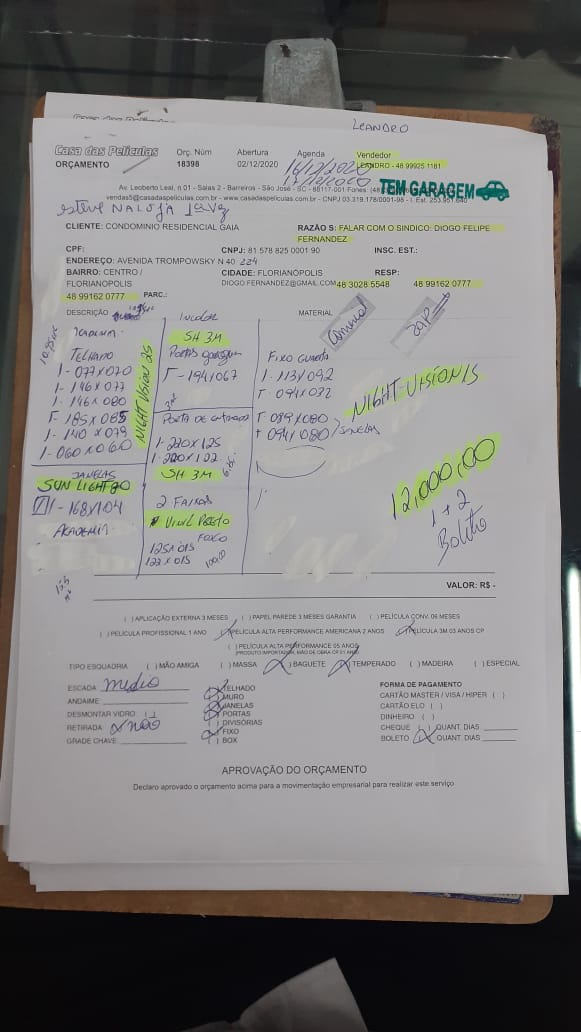 LEANDRO
Casa das Películas
ORÇAMENTO
Orç. Núm
18398
Abertura
02/12/2020
Agenda
16/12/2020
17/12/2020
Vendedor
LEANDRO - 48 99925 1181
Av. Leoberto Leal, n 01 - Salas 2 - Barreiros - São José - SC - 88117-001 Fones: (48)
vendas5@casadaspeliculas.com.br - www.casadaspeliculas.com.br - CNPJ 03.319.178/0001-98 - I. Est. 253.951.640
TEM GARAGEM
esteve NA LOJA 1a Vez
CLIENTE: CONDOMINIO RESIDENCIAL GAIA
RAZÃO S: FALAR COM O SINDICO: DIOGO FELIPE
FERNANDEZ
CPF:
CNPJ: 81 578 825 0001 90
INSC. EST.:
ENDEREÇO: AVENIDA TROMPOWSKY N 40 224
BAIRRO: CENTRO /
CIDADE: FLORIANÓPOLIS
RESP:
FLORIANÓPOLIS
DIOGO FERNANDEZ@GMAIL.COM 48 3028 5548
48 99162 0777
48 99162 0777
PARC.:
DESCRIÇÃO
MATERIAL
ACADEMIA
TELHADO
1- 077X070
1- 146X077
1- 146X080
1- 185X085
1- 140X079
1- 060X060
NIGHT VISION 25
JANELAS
SUN LIGHT 80
1- 168X104
ACADEMIA
Incolor
SH 3M
PORTAS garagem
1- 194X067
PORTA DE entrada
1- 220X125
1- 220X122
SH 3M
2 FAIXAS
VINIL Preto
FOSCO
125X015
122X015
FIXO GUARITA
1- 113X092
1- 094X032
1- 089X080
1- 094X080
JANELAS
NIGHT-VISION 15
12,000,00
1 + 2
Boleto
VALOR: R$ -
( ) APLICAÇÃO EXTERNA 3 MESES ( ) PAPEL PAREDE 3 MESES GARANTIA ( ) PELÍCULA CONV. 06 MESES
( ) PELÍCULA PROFISSIONAL 1 ANO (X) PELÍCULA ALTA PERFORMANCE AMERICANA 2 ANOS (X) PELÍCULA 3M 03 ANOS CP
( ) PELÍCULA ALTA PERFORMANCE 05 ANOS
(PRODUTO IMPORTADO, MÃO DE OBRA CP 01 ANO)
TIPO ESQUADRIA ( ) MÃO AMIGA ( ) MASSA (X) BAGUETE (X) TEMPERADO ( ) MADEIRA ( ) ESPECIAL
ESCADA medio
ANDAIME:
DESMONTAR VIDRO ( )
RETIRADA não
GRADE CHAVE
TELHADO
MURO
JANELAS
PORTAS
DIVISÓRIAS
FIXO
BOX
FORMA DE PAGAMENTO
CARTÃO MASTER / VISA / HIPER ( )
CARTÃO ELO ( )
DINHEIRO ( )
CHEQUE ( ) QUANT. DIAS
BOLETO (X) QUANT. DIAS
APROVAÇÃO DO ORÇAMENTO
Declaro aprovado o orçamento acima para a movimentação empresarial para realizar este serviço